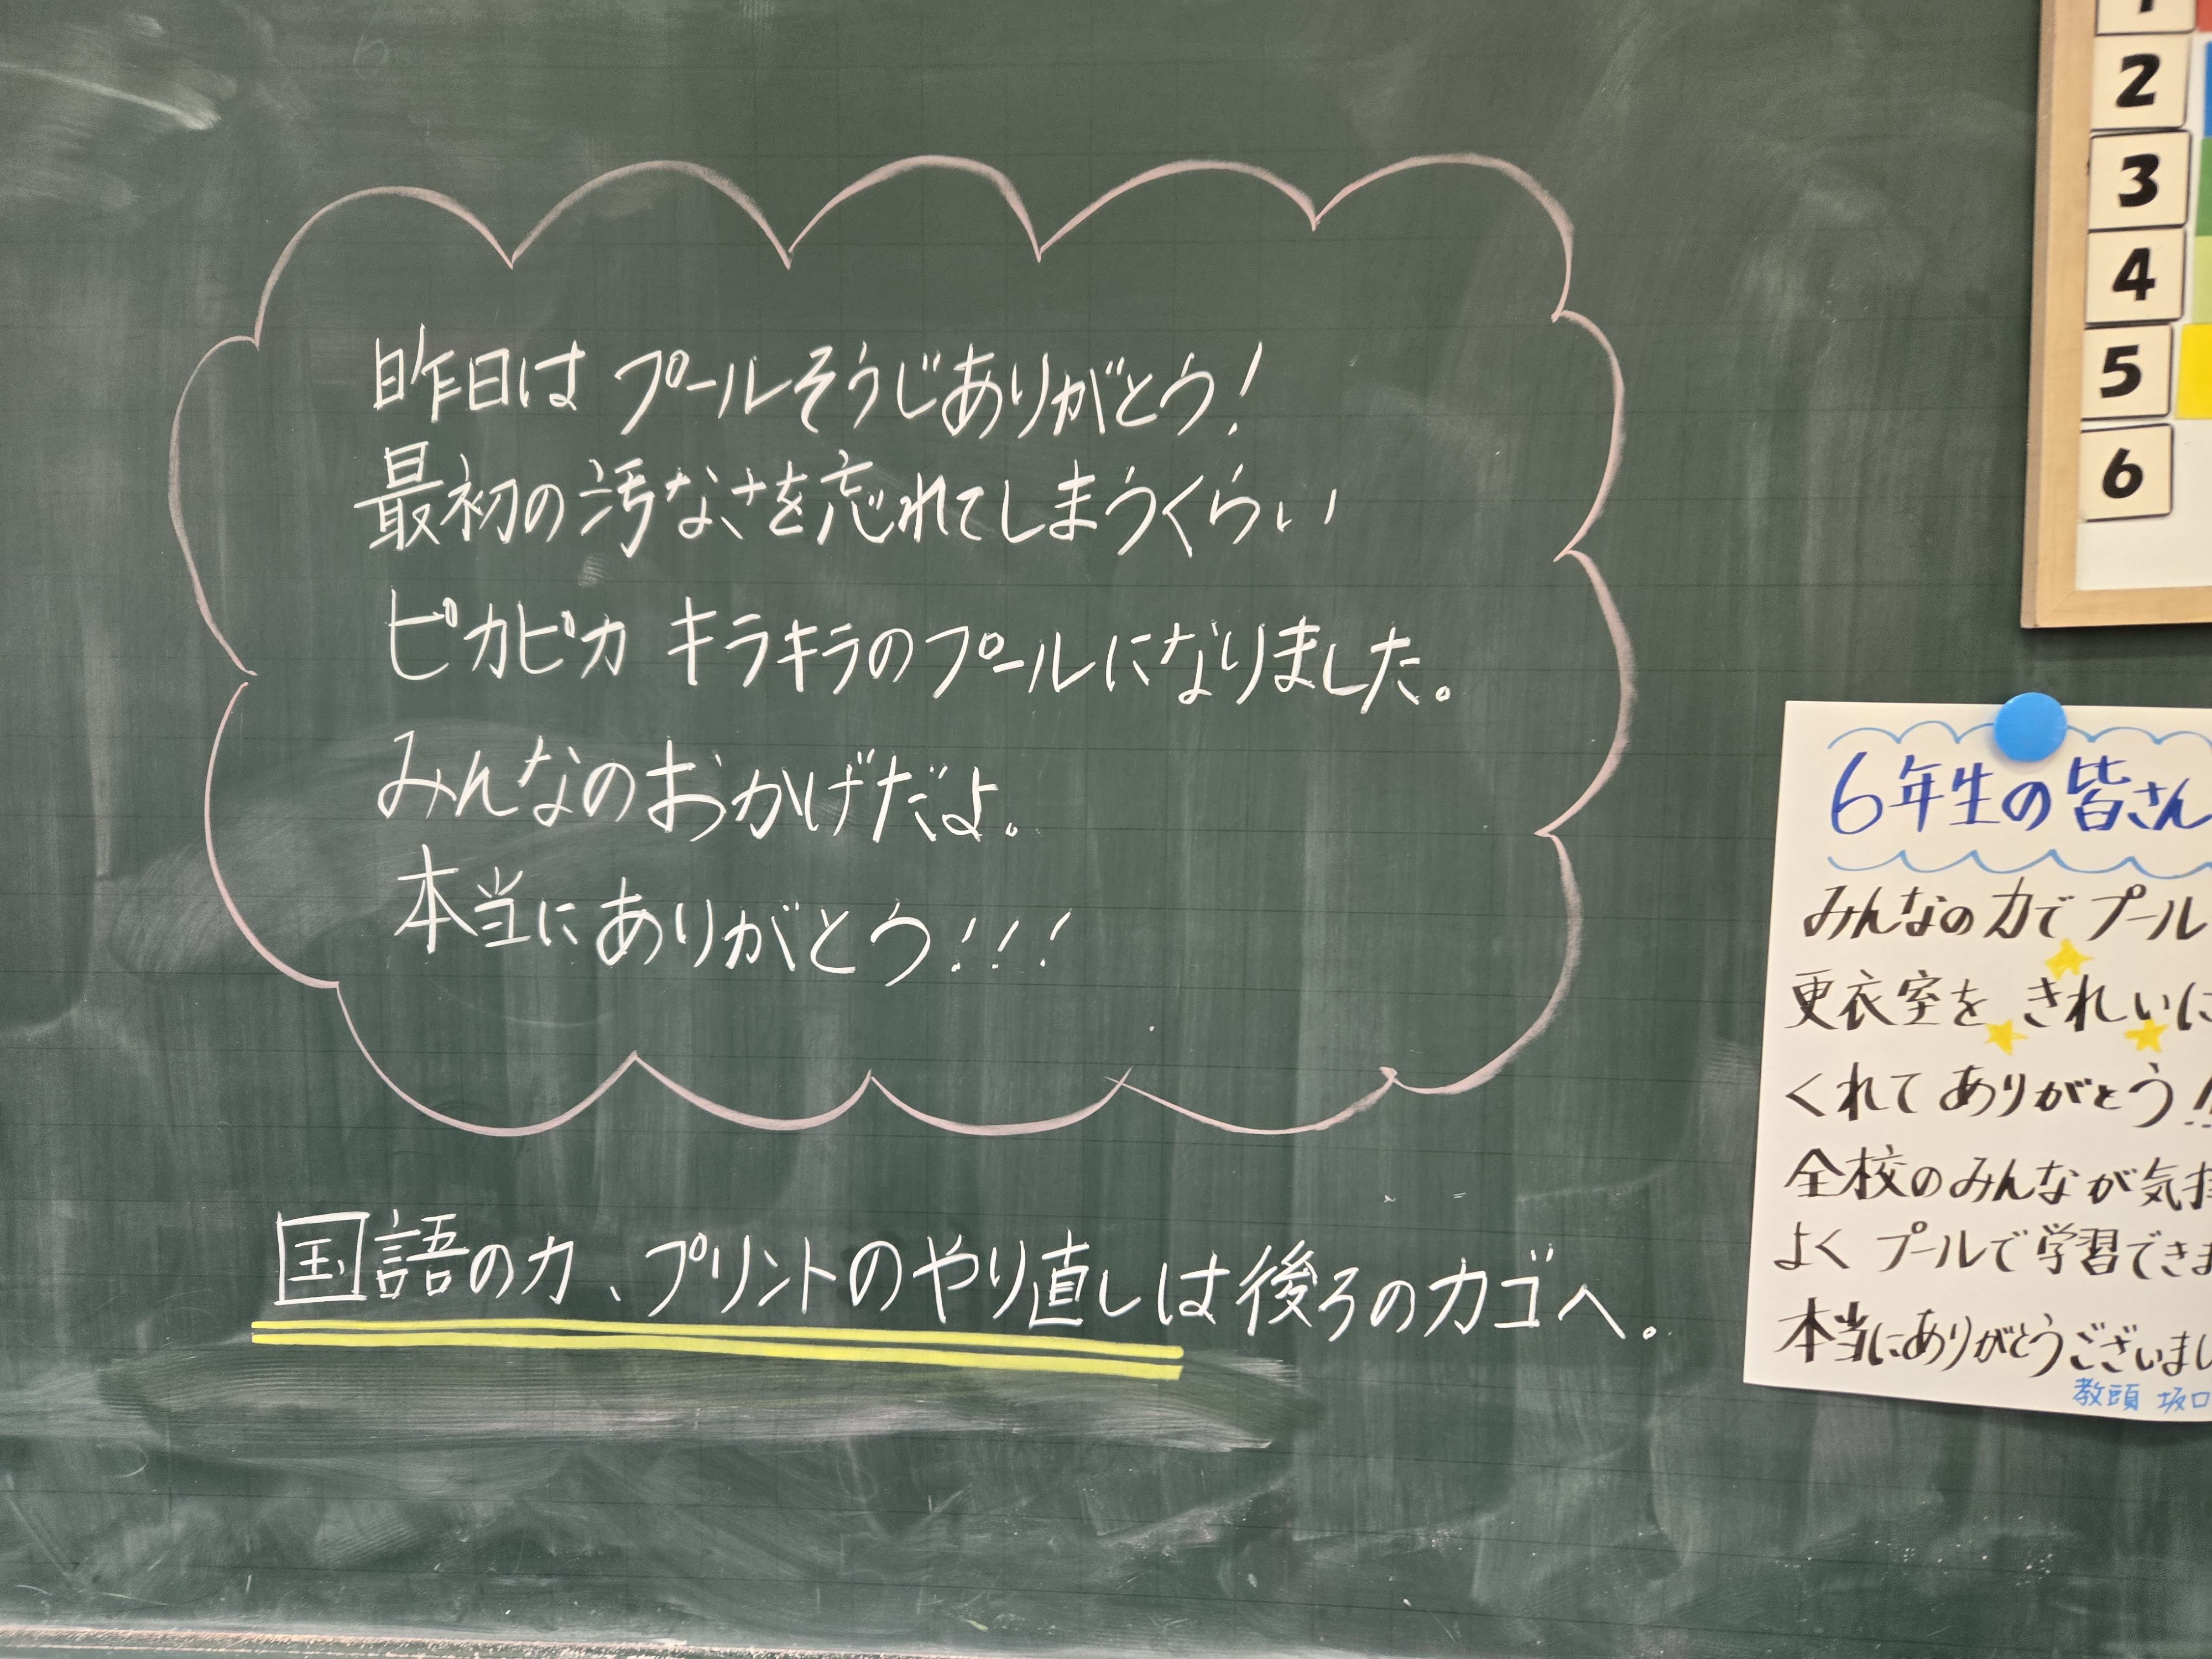 昨日は プールそうじありがとう!
最初の汚なさを忘れてしまうくらい
ピカピカ キラキラのプールになりました。
みんなのおかげだよ。
本当にありがとう!!!
国語の力、プリントのやり直しは後ろのカゴへ。
2
3
4
5
6
6年生の皆さん
みんなの力で プール
更衣室を きれいに
くれて ありがとう!!
全校のみんなが気持
よく プールで学習できま
本当にありがとうございまし
教頭 坂口